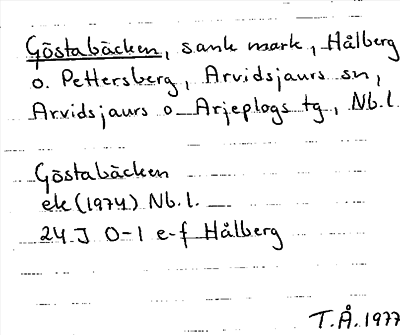 Göstabäcken, sank mark, Hålberg
o. Pettersberg, Arvidsjaurs sn,
Arvidsjaurs o Arjeplogs tg, Nb.l.
Göstabäcken
ek (1974) Nb.l.
24 J 0-1 e-f Hålberg
T.Å. 1977